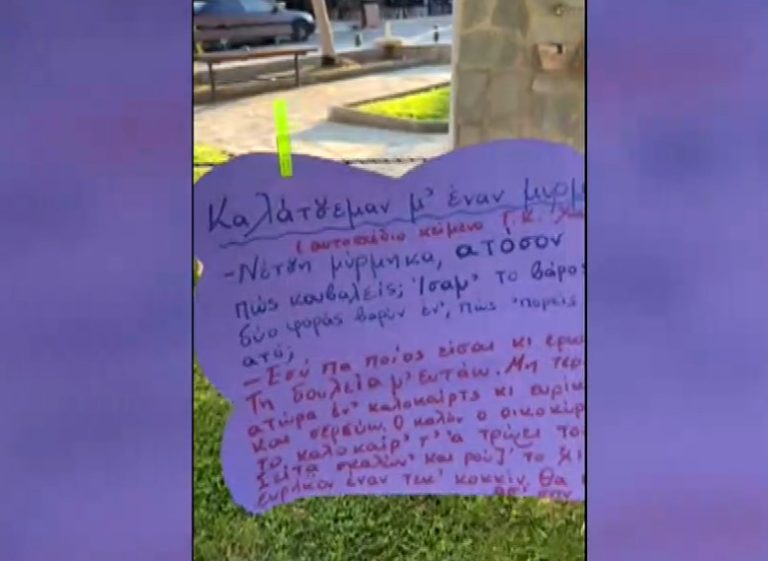 Καλάτζεμαν μ' έναν μυρμ
(αυτοσχέδιο κείμενο Γ.Κ.
-Ντέτζη μύρμηκα, ατόσον
πώς κουβαλείς; Ίσαμ' το βάρος
δύο φοράς βαρύν έν', πώς 'πορείς
ατό;
-Εσύ πα ποίος είσαι κι ερω
Τη δουλεία μ' ευτάω. Μη τερ
ατώρα έν' καλοκαίρτς κι ευρίκ
και σερεύω. Ο καλόν ο οικοκύρ
το καλοκαίρ' τ' ά τρώει το
και ρούζ' το χι
ευρήκον έναν τεκ' κοκκίν. Θα